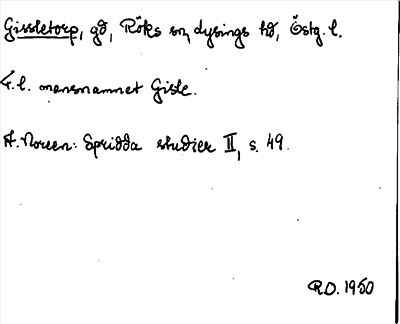 Gissletorp, gd, Röks sn, Lysings hd, Östg. l.
F. l. mansnamnet Gisle.
A. Noreen: Spridda studier II, s. 49.
R.O. 1950